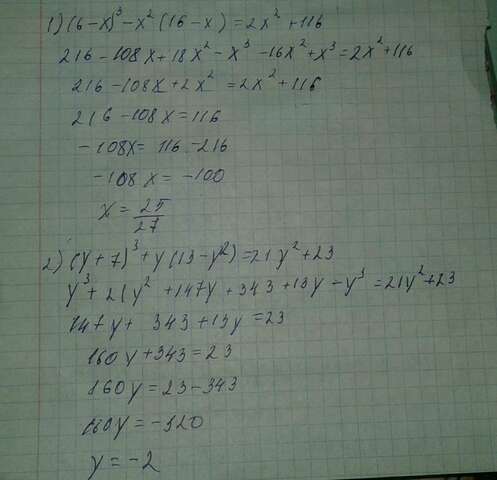 1) (6-x)³-x²(16-x)=2x²+116
216-108x+18x²-x³-16x²+x³=2x²+116
216-108x+2x²=2x²+116
216-108x=116
-108x=116-216
-108x=-100
x=25/27
2) (y+7)³+y(13-y²)=21y²+23
y³+21y²+147y+343+13y-y³=21y²+23
147y+343+13y=23
160y+343=23
160y=23-343
160y=-320
y=-2